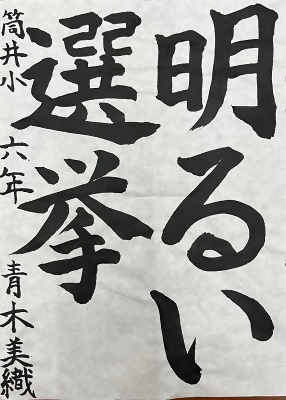 明るい
選挙
筒井小 六年 青木美織